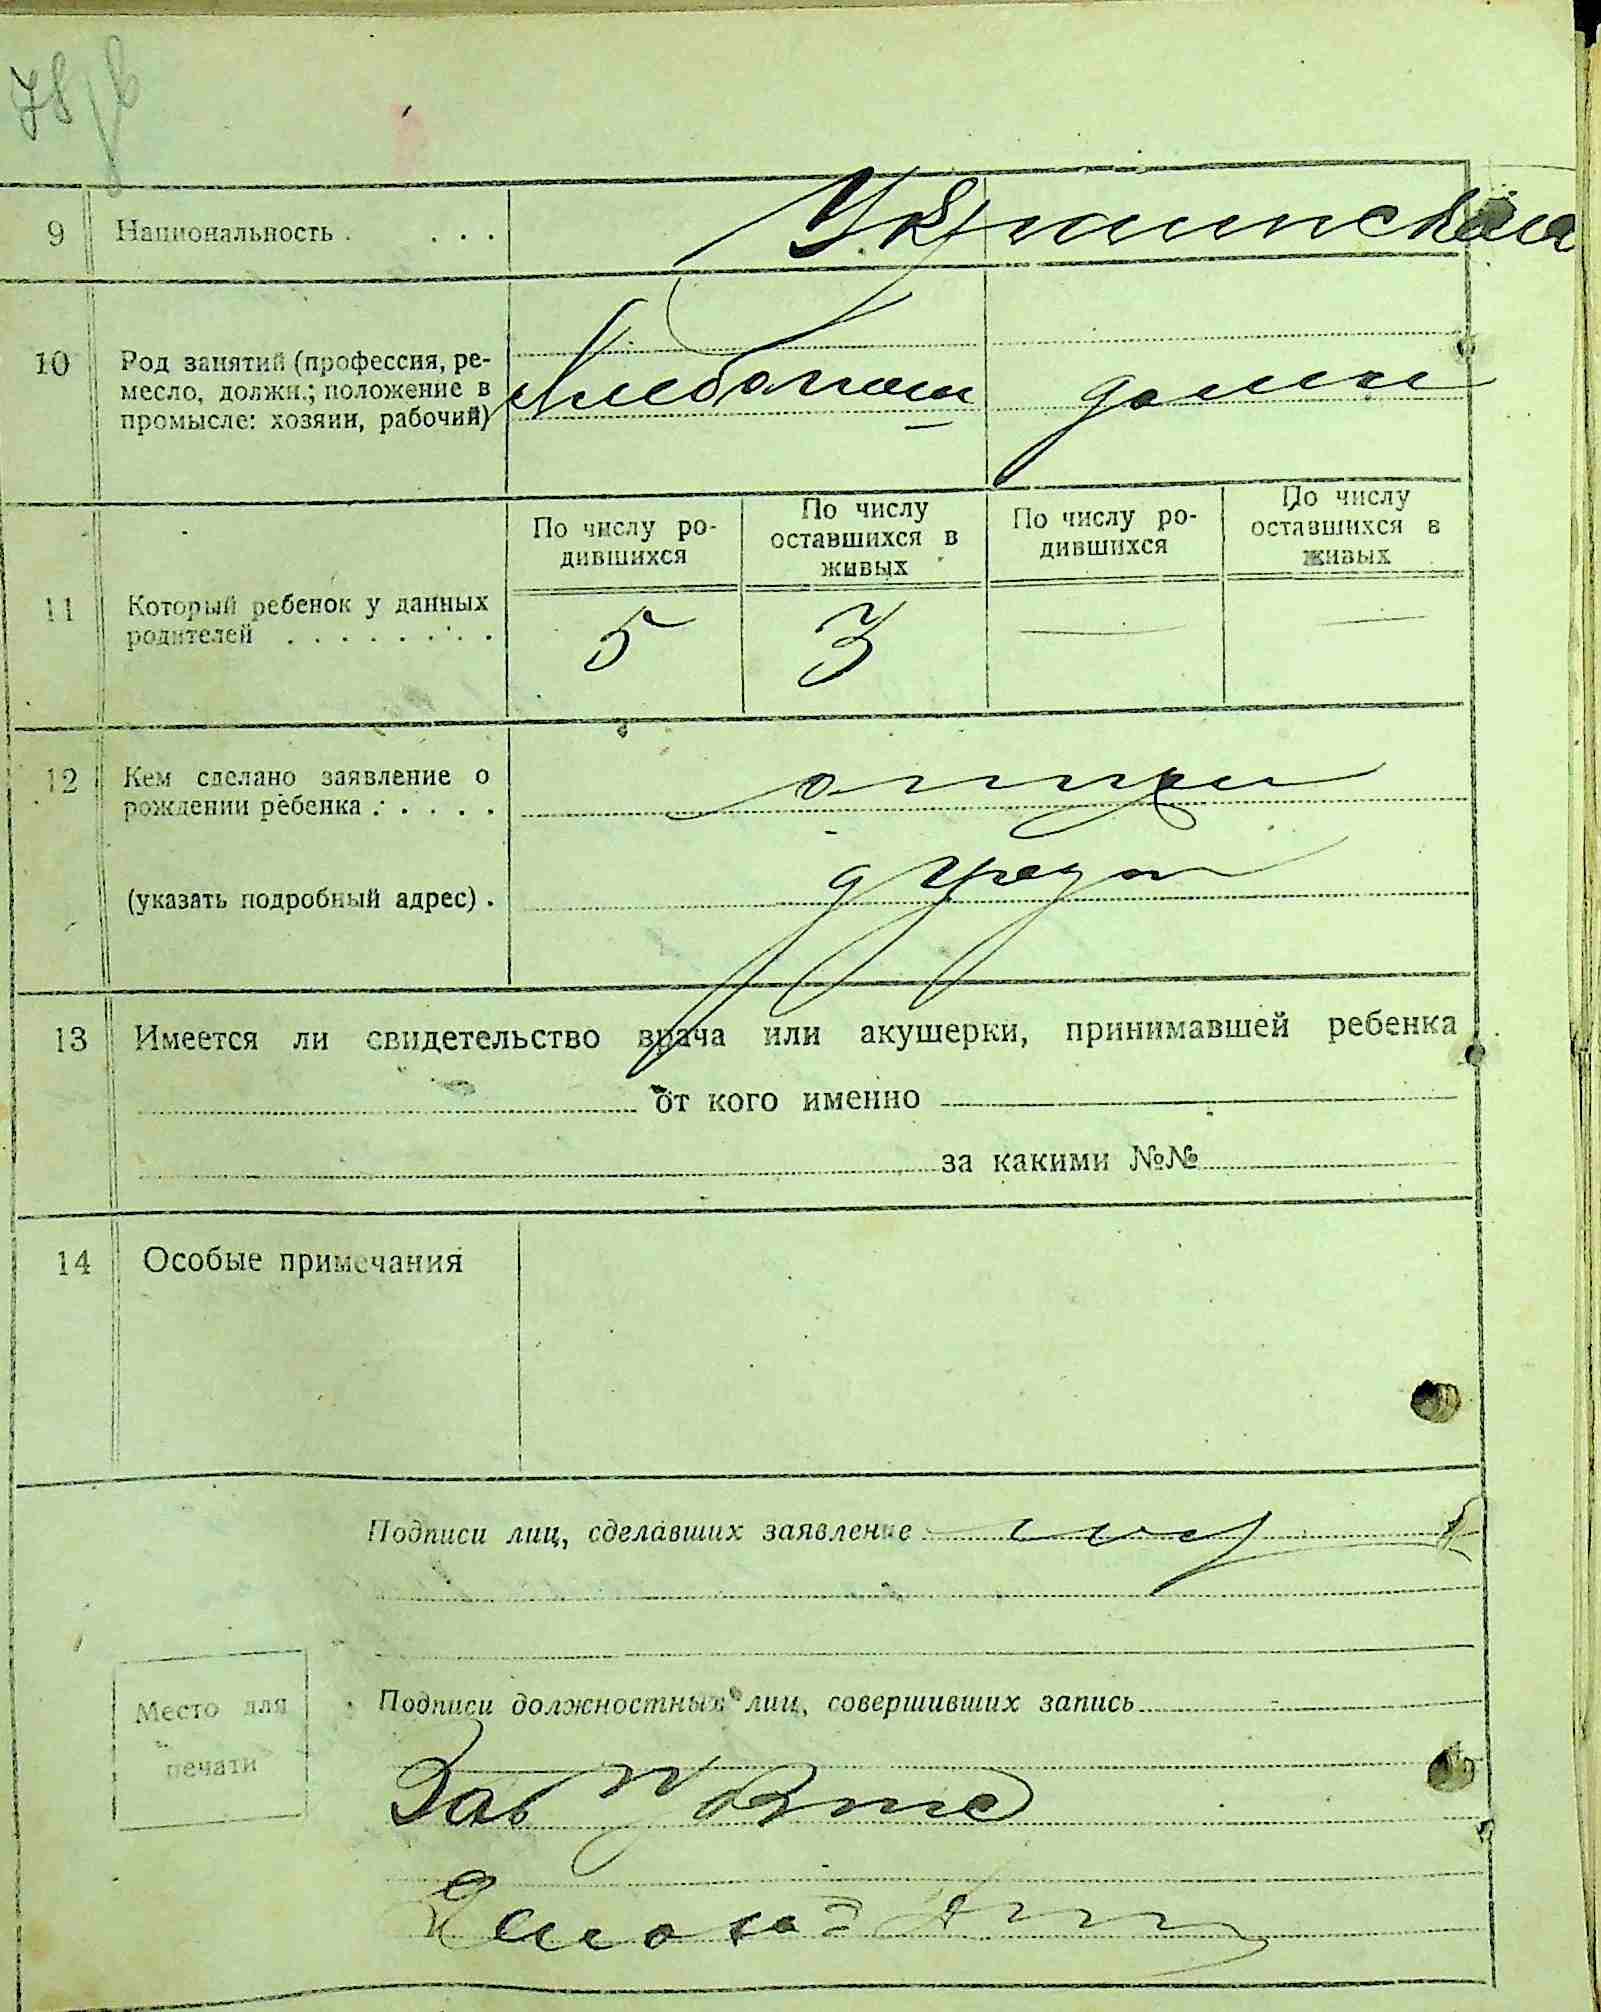 9 Национальность . . . . Украинская
10 Род занятий (профессия, ре-
месло, должн.; положение в
промысле: хозяин, рабочий)
Хлебопаш дома
По числу ро-
дившихся
По числу
оставшихся в
живых
По числу ро-
дившихся
По числу
оставшихся в
живых
11 Который ребенок у данных
родителей . . . . . . . . .
5 3 — —
12 Кем сделано заявление о
рождении ребенка . . . . . .
отцом
(указать подробный адрес) .
13 Имеется ли свидетельство врача или акушерки, принимавшей ребенка
от кого именно
за какими №№
14 Особые примечания
Подписи лиц, сделавших заявление
Место для
печати
Подписи должностных лиц, совершивших запись
Зав